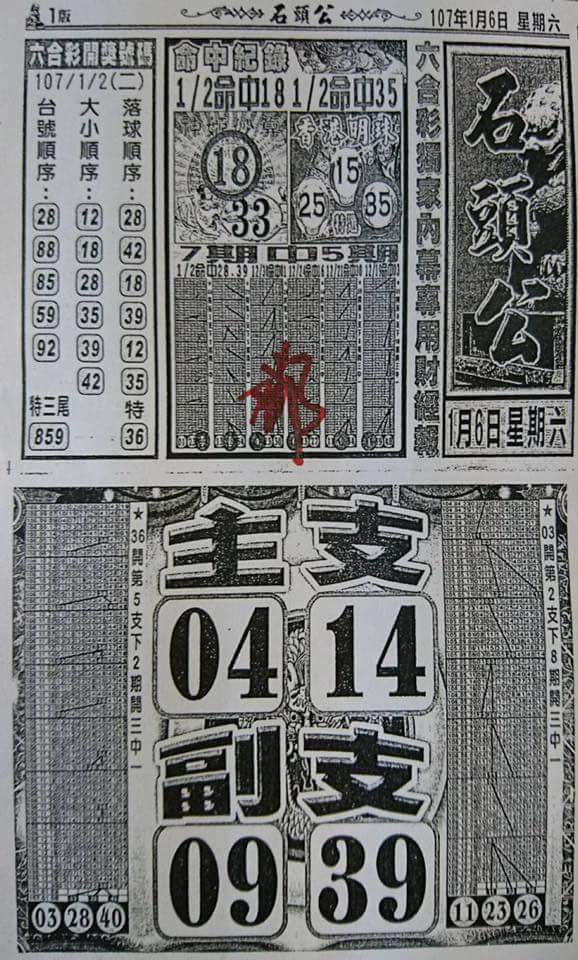 1版
石頭公
107年1月6日 星期六
六合彩開獎號碼
107/1/2(二)
台號順序：
28
88
85
59
92
特三尾
859
大小順序：
12
18
28
35
39
42
落球順序：
28
42
18
39
12
35
特
36
命中紀錄
1/2命中18
1/2命中35
18
33
香港明珠
15
25
35
7期中5期
1/2命中28.39
六合彩獨家內幕專用財經報
石頭公
1月6日 星期六
★36開第5支下2期開三中一
03 28 40
主支
04 14
副支
09 39
★03開第2支下8期開三中一
11 23 26